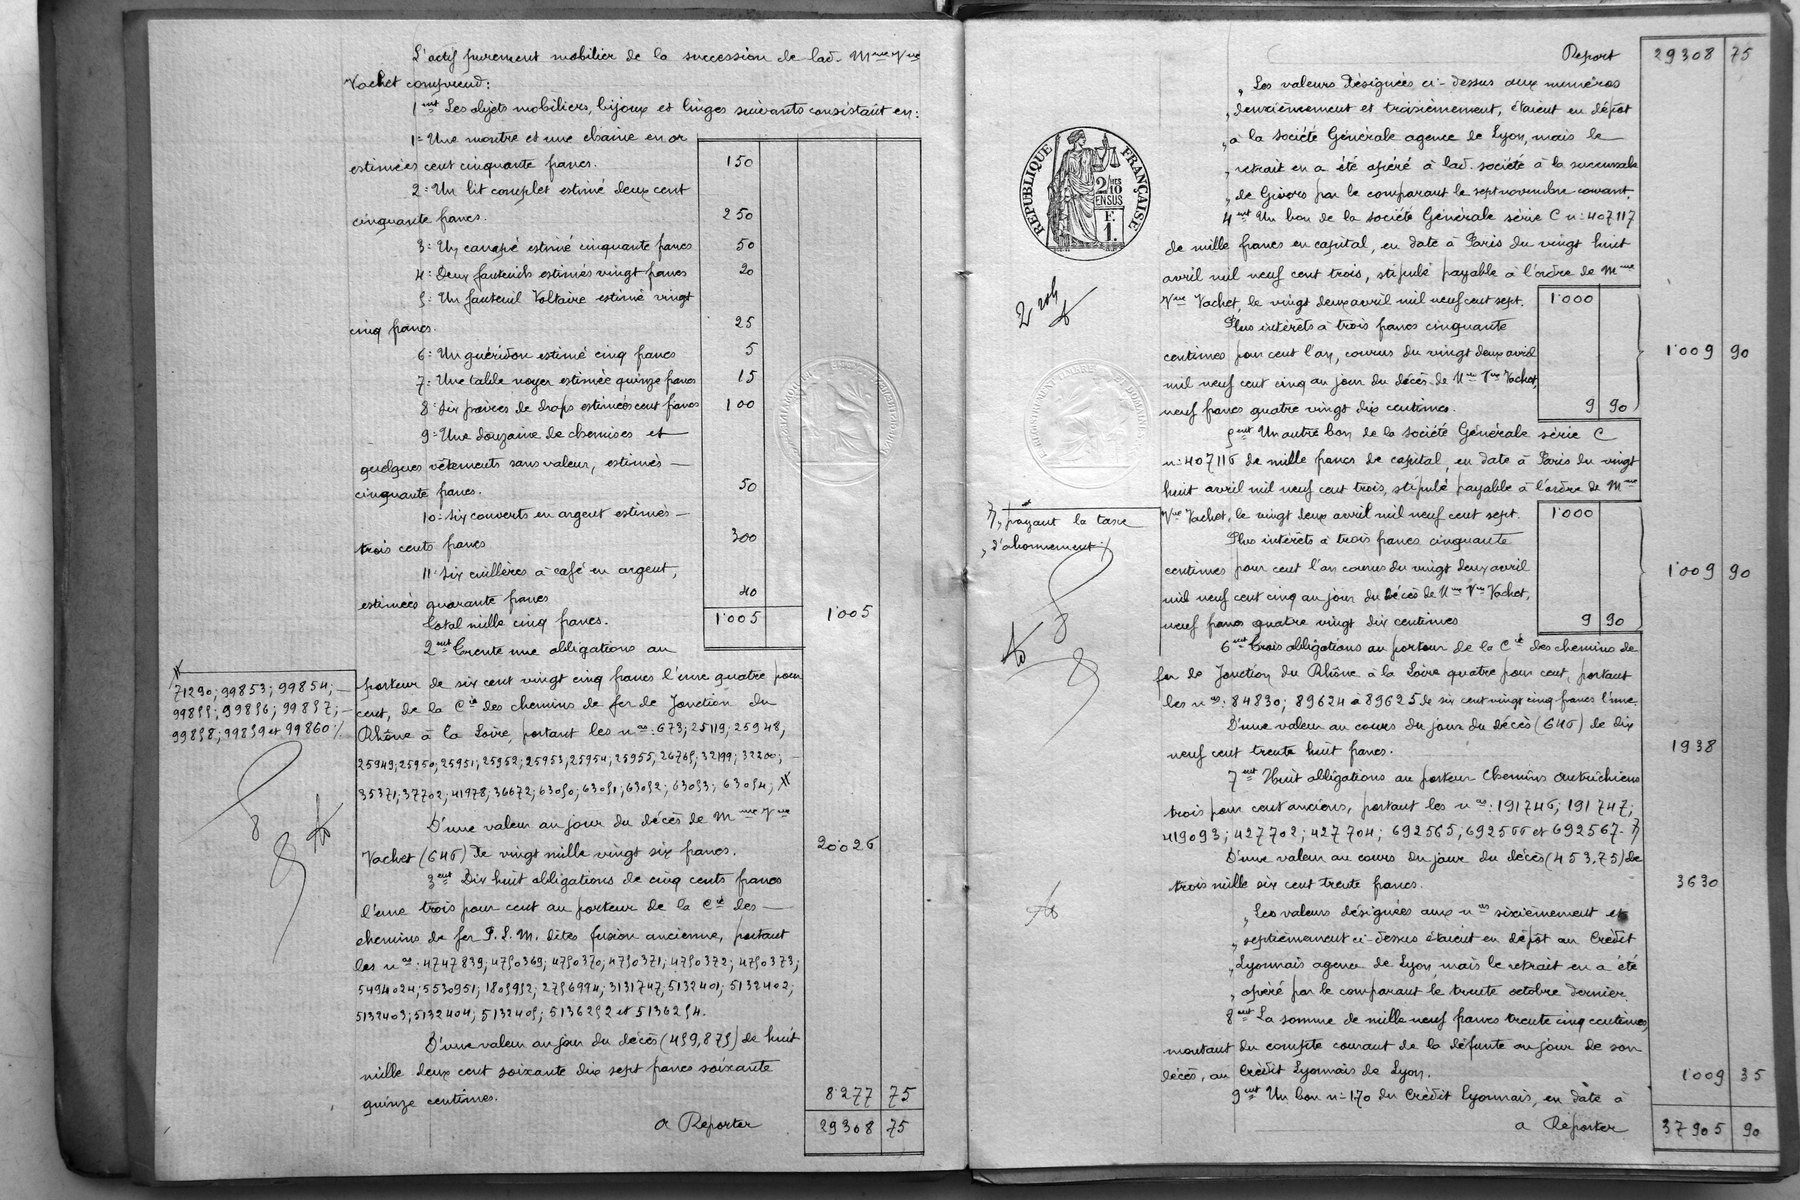 L'actif purement mobilier de la succession de lad. Mme Vve
Vachet comprend:
1ent Les objets mobiliers, bijoux et linges suivants consistant en:
1º Une montre et une chaine en or
estimées cent cinquante francs. 150
2º Un lit complet estimé deux cent
cinquante francs. 250
3º Un canapé estimé cinquante francs 50
4º Deux fauteuils estimés vingt francs 20
5º Un fauteuil Voltaire estimé vingt
cinq francs. 25
6º Un guéridon estimé cinq francs 5
7º Une table noyer estimée quinze francs 15
8º Six paires de draps estimées cent francs 100
9º Une douzaine de chemises et
quelques vêtements sans valeur, estimés
cinquante francs. 50
10º Six couverts en argent estimés
trois cents francs 300
11º Six cuillères à café en argent,
estimées quarante francs 40
Total mille cinq francs. 1005 1005
2ent Trente une obligations au
porteur de six cent vingt cinq francs l'une quatre pour
cent, de la Cie des chemins de fer de Jonction du
Rhône à la Loire, portant les nos: 673; 25119; 25948;
25949; 25950; 25951; 25952; 25953; 25954; 25955; 26765; 32199; 32200;
35371; 37702; 41978; 36672; 63050; 63051; 63052; 63053; 63054;
71290; 99853; 99854;
99855; 99856; 99857;
99858; 99859 et 99860 /.
D'une valeur au jour du décès de Mme Vve
Vachet (646) de vingt mille vingt six francs. 20026
3ent Dix huit obligations de cinq cents francs
l'une trois pour cent au porteur de la Cie des
chemins de fer P.L.M. dites fusion ancienne, portant
les nos: 4747839; 4750369; 4750370; 4750371; 4750372; 4750373;
5494024; 5530951; 1805952; 2756994; 3131747; 5132401; 5132402;
5132403; 5132404; 5132405; 5136252 et 5136254.
D'une valeur au jour du décès (459,875) de huit
mille deux cent soixante dix sept francs soixante
quinze centimes. 8277 75
a Reporter 29308 75
Report 29308 75
„ Les valeurs désignées ci-dessus aux numéros
„ deuxièmement et troisièmement, étaient en dépôt
„ à la société Générale agence de Lyon, mais le
„ retrait en a été opéré à lad. société à la succursale
„ de Givors par le comparant le sept novembre courant.
RÉPUBLIQUE FRANÇAISE
2/10 EN SUS
F. 1.
4ent Un bon de la société Générale série C nº 407117
de mille francs en capital, en date à Paris du vingt huit
avril mil neuf cent trois, stipulé payable à l'ordre de Mme
Vve Vachet, le vingt deux avril mil neuf cent sept. 1000
Plus intérêts à trois francs cinquante
centimes pour cent l'an, courus du vingt deux avril 1009 90
mil neuf cent cinq au jour du décès de Mme Vve Vachet,
neuf francs quatre vingt dix centimes. 9 90
5ent Un autre bon de la société Générale série C
nº 407116 de mille francs de capital, en date à Paris du vingt
huit avril mil neuf cent trois, stipulé payable à l'ordre de Mme
Vve Vachet, le vingt deux avril mil neuf cent sept. 1000
Plus intérêts à trois francs cinquante
centimes pour cent l'an courus du vingt deux avril 1009 90
mil neuf cent cinq au jour du décès de Mme Vve Vachet,
neuf francs quatre vingt dix centimes 9 90
payant la taxe
„ d'abonnement /
6ent Trois obligations au porteur de la Cie des chemins de
fer de Jonction du Rhône à la Loire quatre pour cent, portant
les nos: 84830; 89624 à 89625 de six cent vingt cinq francs l'une.
D'une valeur au cours du jour du décès (646) de dix
neuf cent trente huit francs. 1938
7ent Huit obligations au porteur Chemins Autrichiens
trois pour cent anciens, portant les nos: 191746; 191747;
419093; 427702; 427704; 692565; 692566 et 692567.
D'une valeur au cours du jour du décès (453,75) de
trois mille six cent trente francs. 3630
„ Les valeurs désignées aux nos sixièmement et
„ septièmement ci-dessus étaient en dépôt au Crédit
„ Lyonnais agence de Lyon, mais le retrait en a été
„ opéré par le comparant le trente octobre dernier.
8ent La somme de mille neuf francs trente cinq centimes,
montant du compte courant de la défunte au jour de son
décès, au Crédit Lyonnais de Lyon. 1009 35
9ent Un bon nº 170 du Crédit Lyonnais, en date à
a Reporter 37905 90